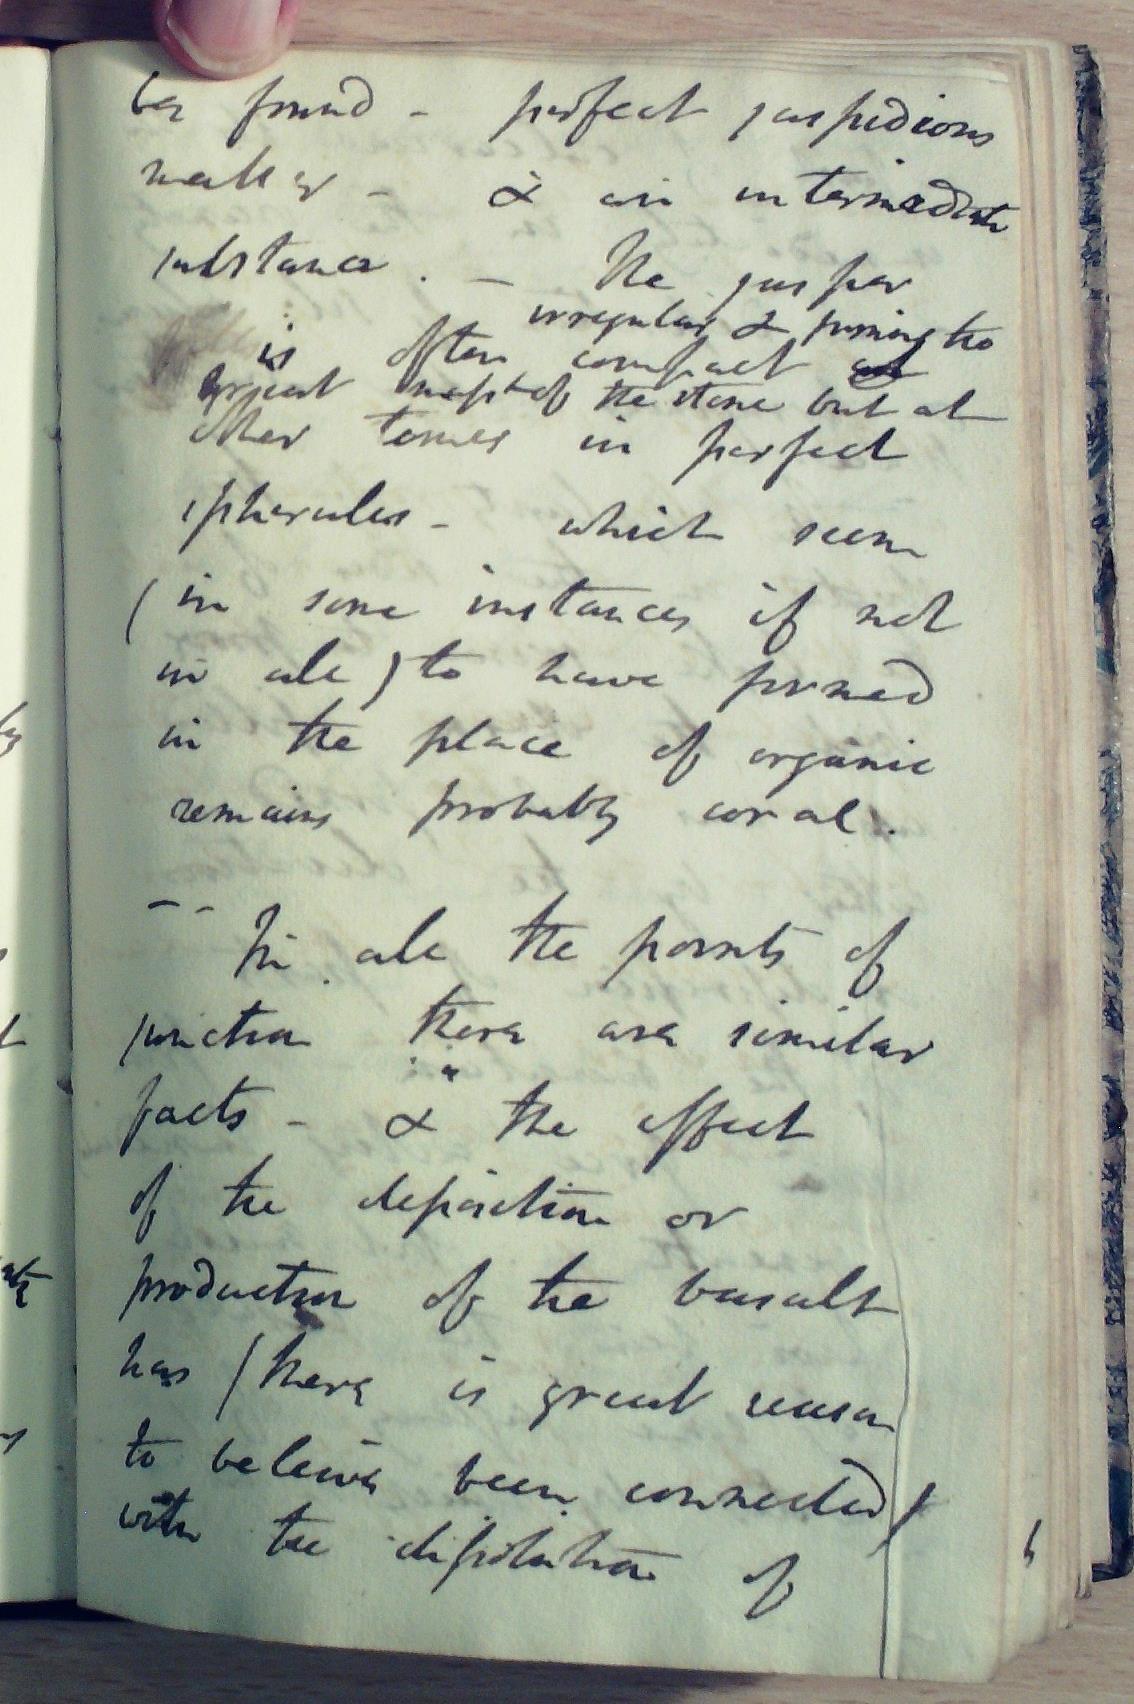 be found - perfect jaspidious
matter - & an intermediate
substance. - The jasper
irregular & forming the
is often compact and
great mass of the stone but at
other times in perfect
spherules - which seem
(in some instances if not
in all) to have formed
in the place of organic
remains probably coral.
-- In all the points of
junction there are similar
facts - & the effect
of the deposition or
production of the basalt
has (there is great reason
to believe been connected)
with the dissolution of